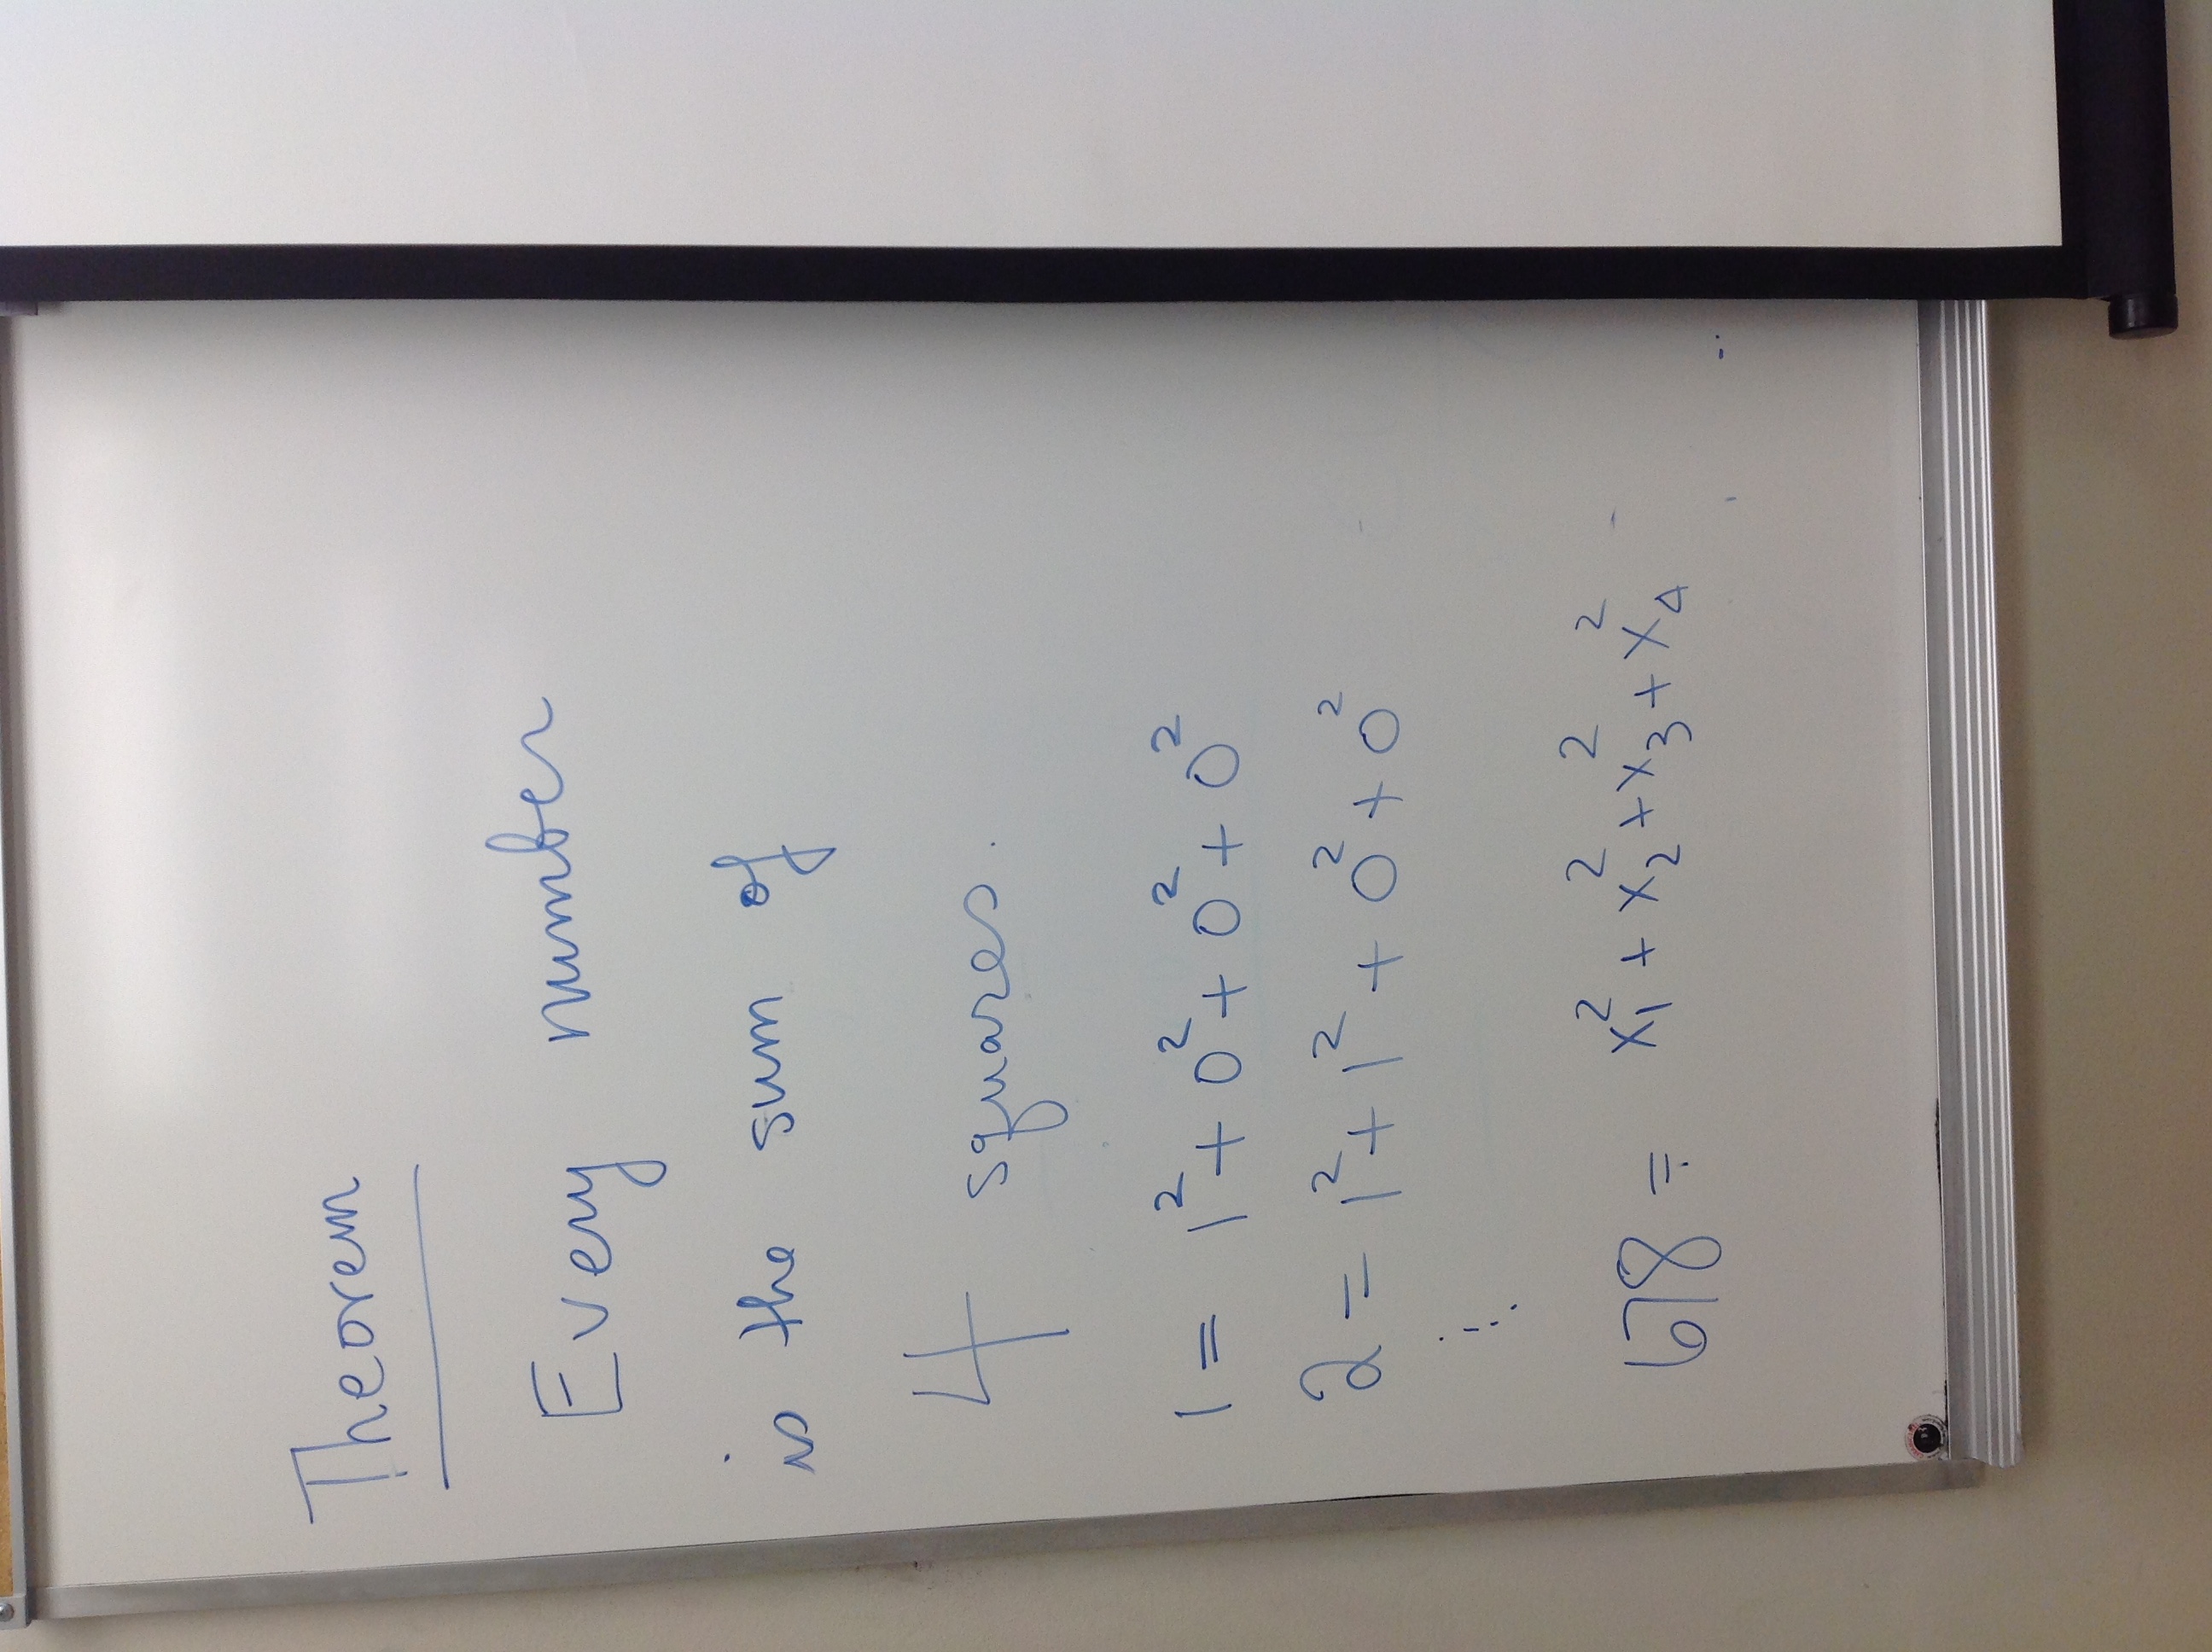 Theorem
Every number
is the sum of
4 squares.
1 = 1² + 0² + 0² + 0²
2 = 1² + 1² + 0² + 0²
⋮
678 = x₁² + x₂² + x₃² + x₄²